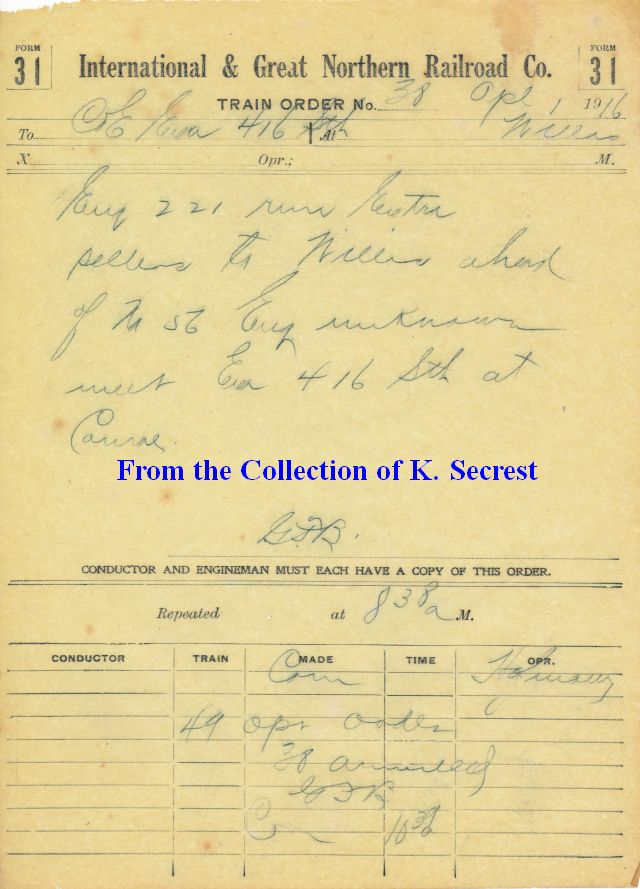 FORM 31 International & Great Northern Railroad Co. FORM 31
TRAIN ORDER No. 38 Apl 1 1916
To C&E Exa 416 Sth At Willis
X Opr.; M.
Eng 221 run Extra
Sellers to Willis ahead
of No 56 Eng unknown
meet Exa 416 Sth at
Conroe.
From the Collection of K. Secrest
G.F.B.
CONDUCTOR AND ENGINEMAN MUST EACH HAVE A COPY OF THIS ORDER.
Repeated at 8 38 a M.
CONDUCTOR TRAIN MADE TIME OPR.
Com
49 opr order
38 annulled
GFB
Com